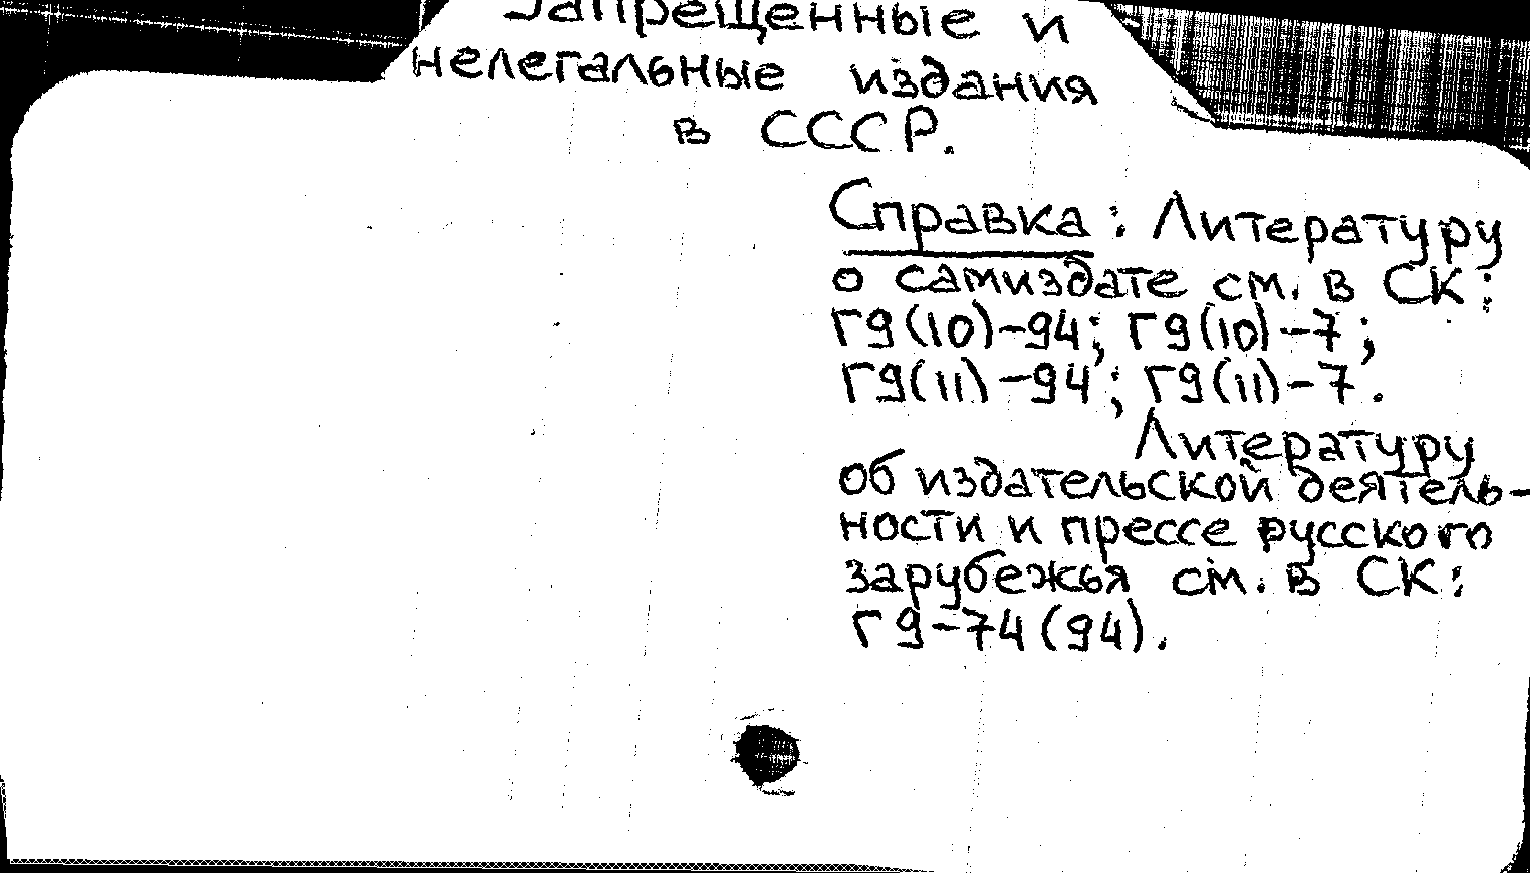 Запрещенные и
нелегальные издания
в СССР.
Справка: Литературу
о самиздате см. в СК:
Г9(10)-94; Г9(10)-7;
Г9(11)-94; Г9(11)-7.
Литературу
об издательской деятель-
ности и прессе русского
зарубежья см. в СК:
Г9-74(94).